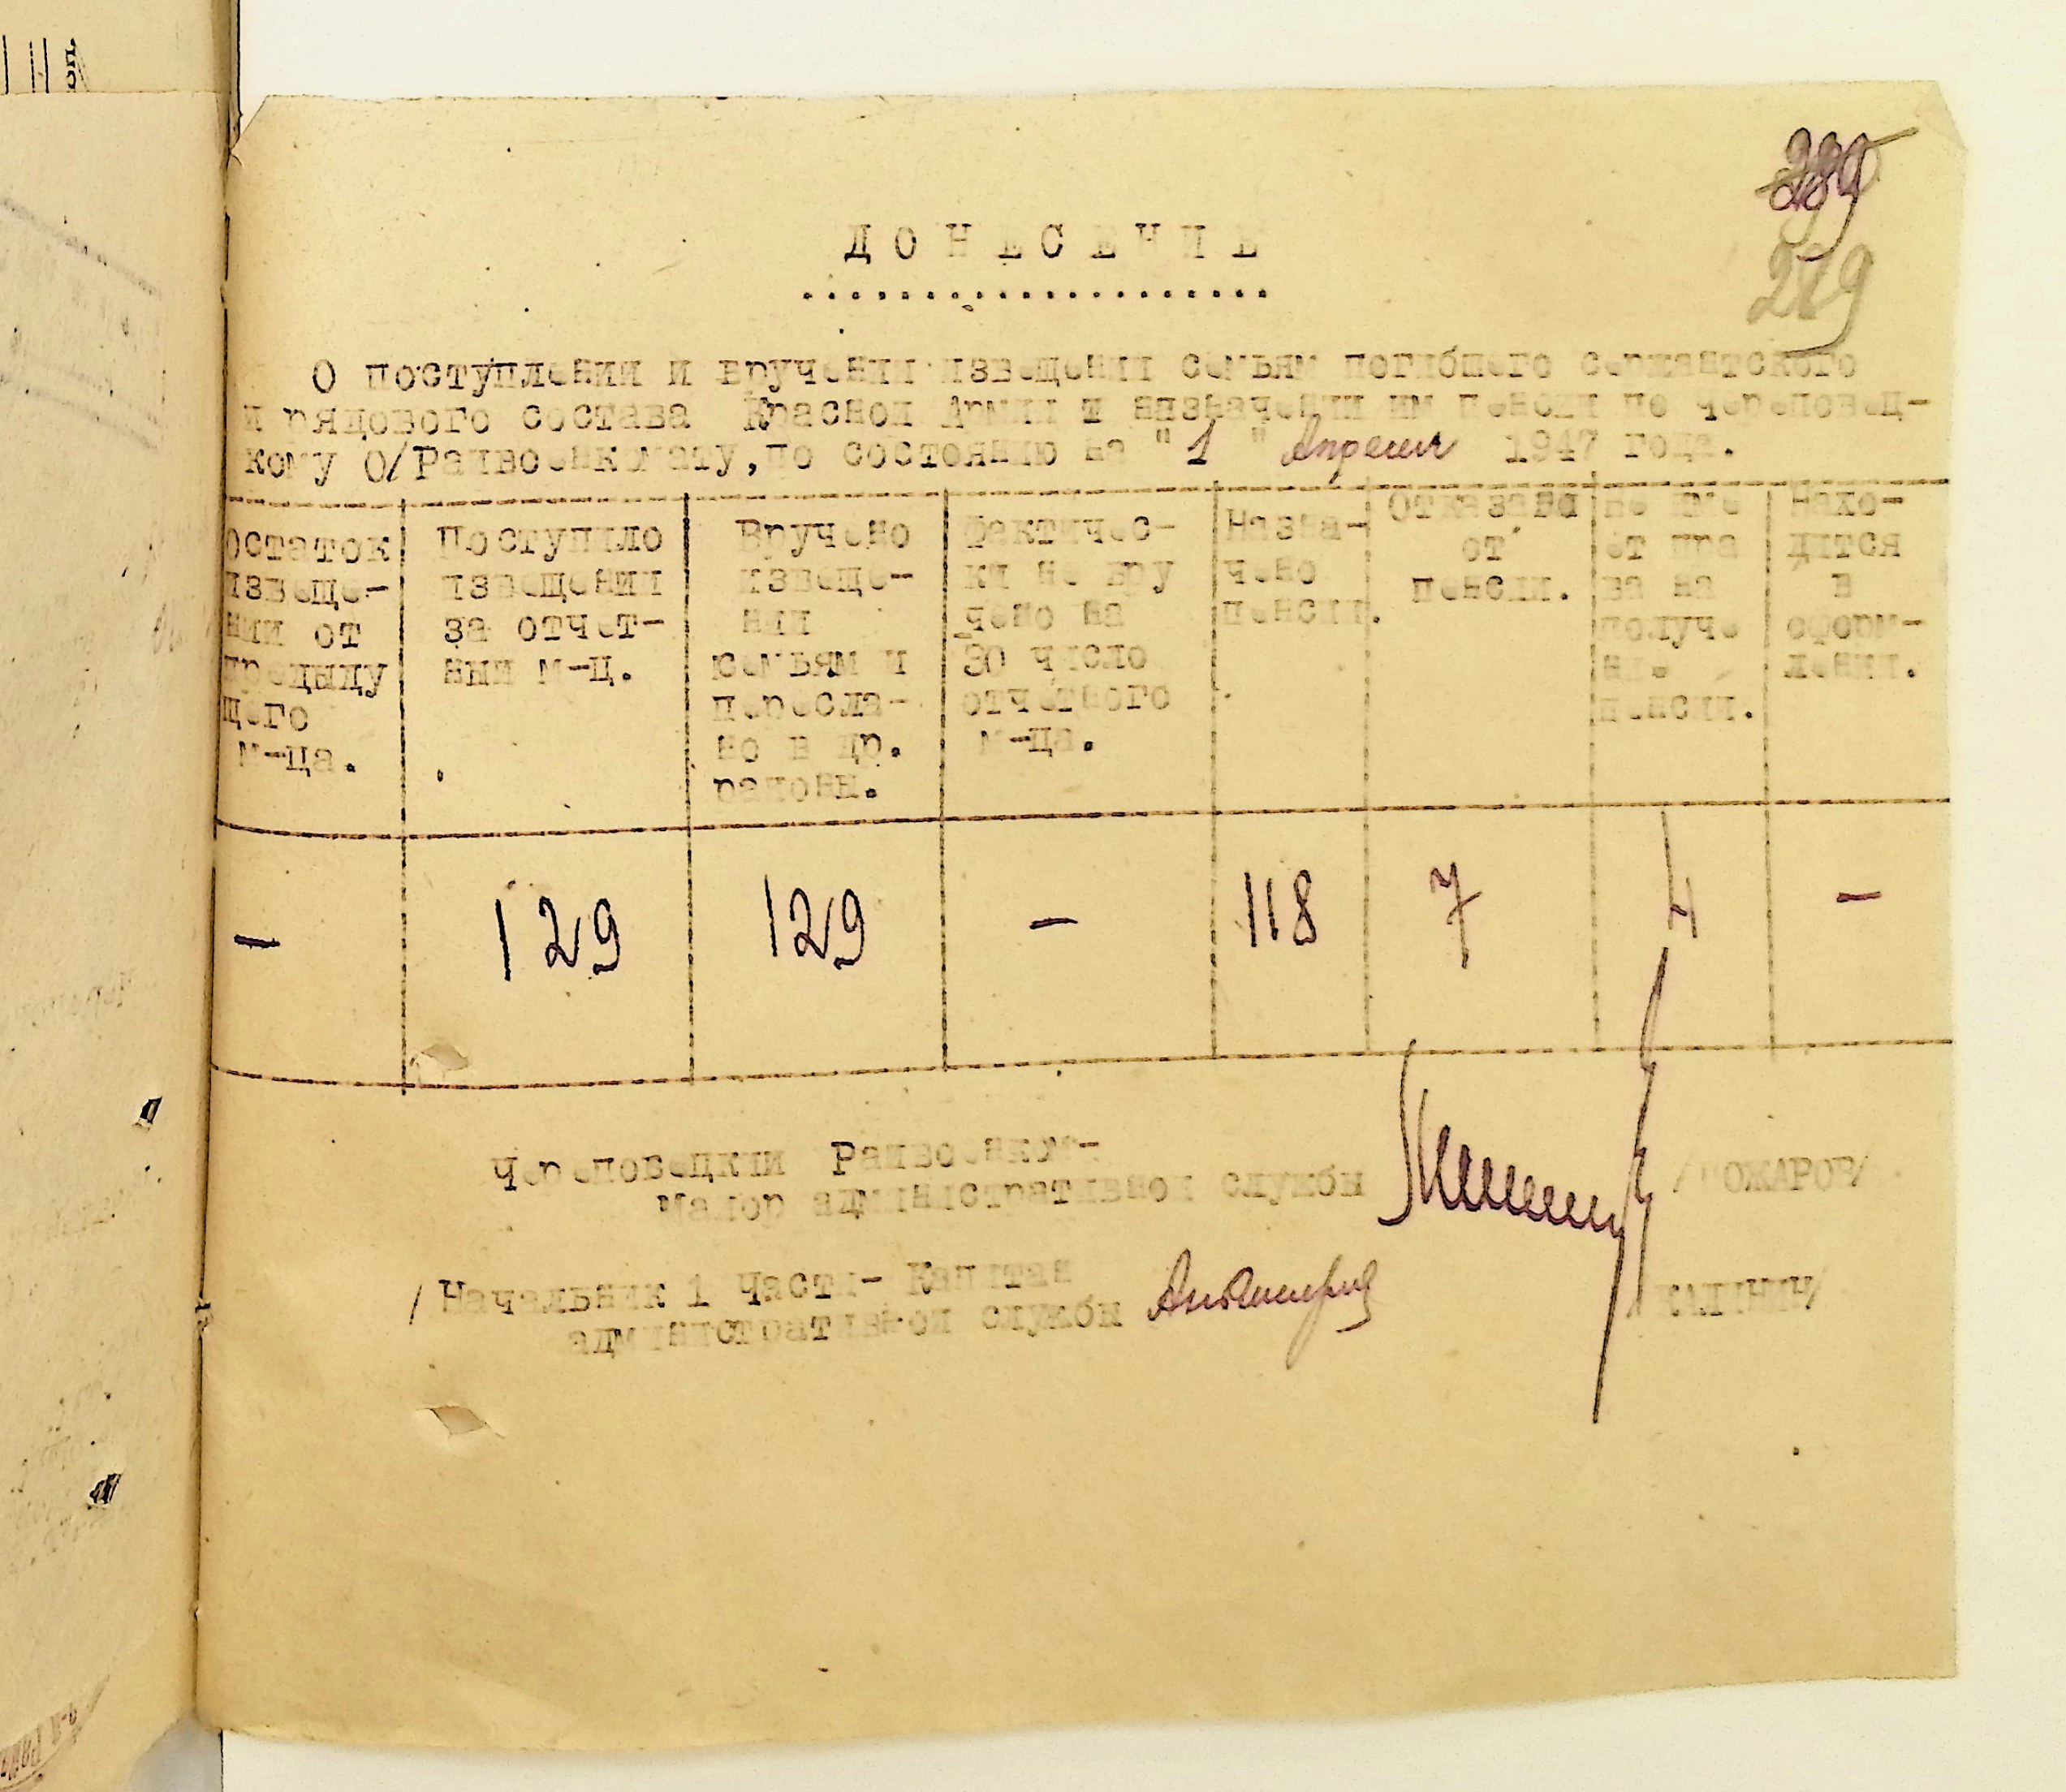 289
279
ДОНЕСЕНИЕ
О поступлении и вручении извещений семьям погибшего сержантского
и рядового состава Красной Армии и назначении им пенсии по Череповец-
кому О/Райвоенкомату, по состоянию на "1" Апреля 1947 года.
Остаток
извеще-
ний от
предыду
щего
м-ца.
Поступило
извещений
за отчет-
ный м-ц.
Вручено
извеще-
ний
семьям и
пересла-
но в др.
районы.
Фактичес-
ки не вру
чено на
30 число
отчетного
м-ца.
Назна-
чено
пенсии.
Отказано
от
пенсии.
не име
ет пра
ва на
получе
ние
пенсии.
Нахо-
дится
в
оформ-
лении.
-
129
129
-
118
7
4
-
Череповецкий Райвоенком-
Майор административной службы /ПОЖАРОВ/
/Начальник 1 Части- Капитан
административной службы /КАЛИНИН/